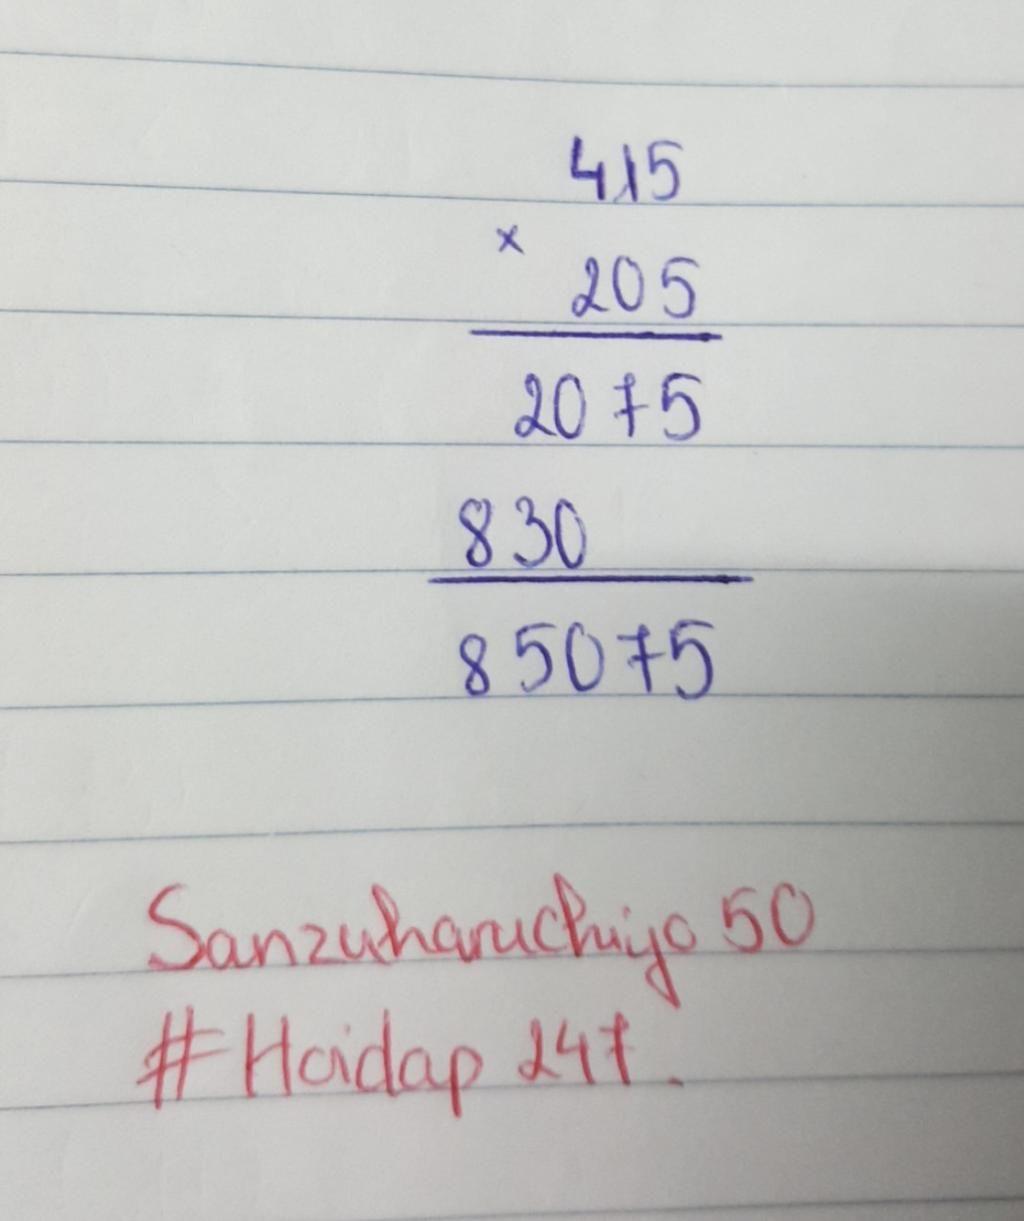 415
×
205
2075
830
85075
Sanzuharuchiyo 50
#Hoidap 247.